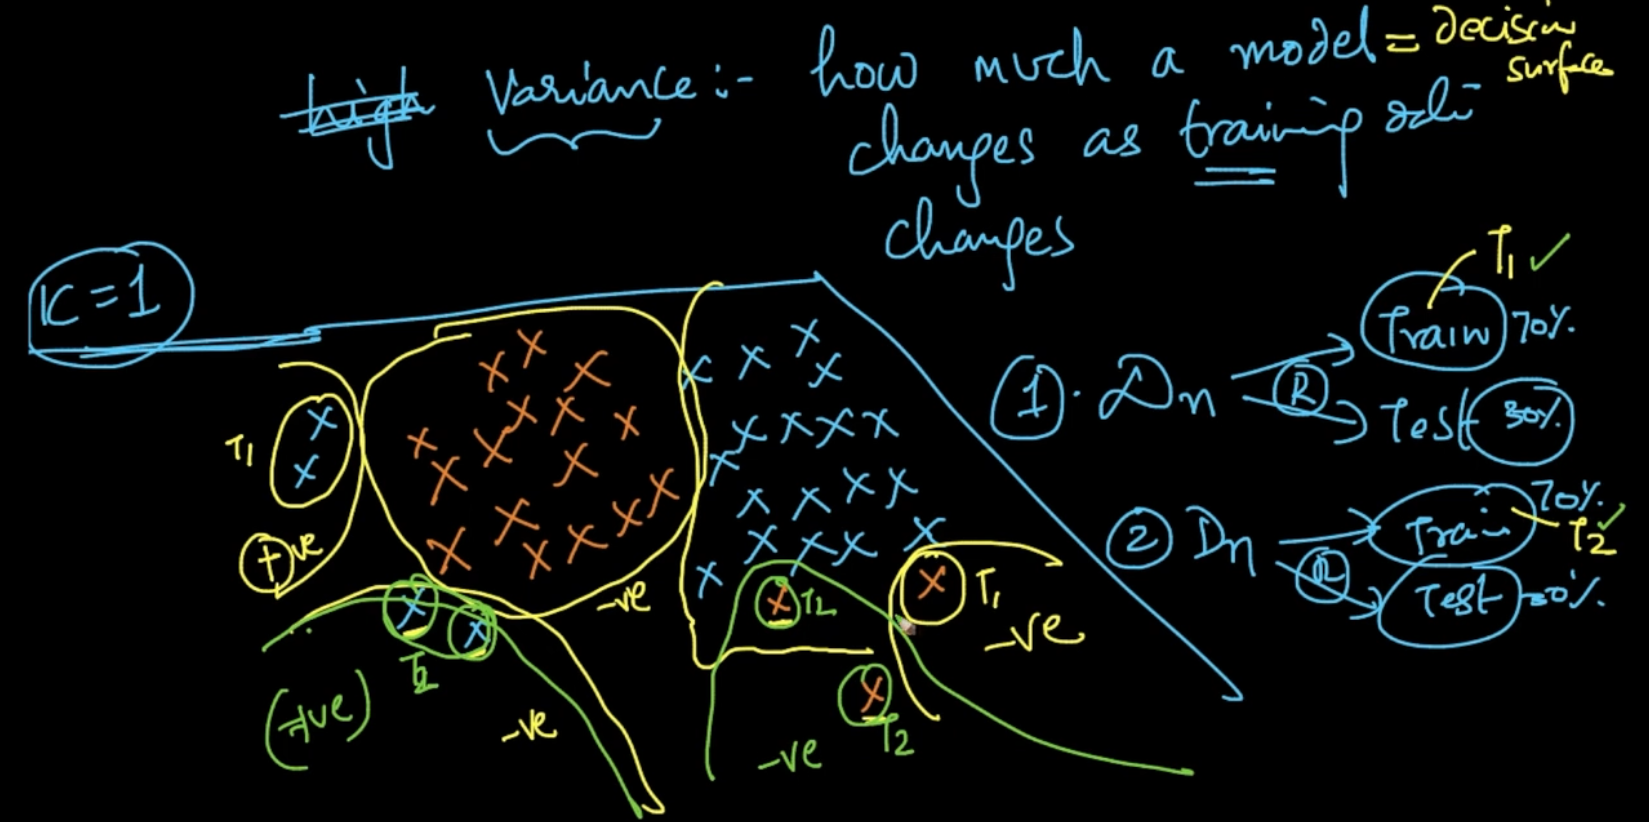 high Variance:- how much a model = decision surfaces
changes as training
changes
K=1
T1
+ve
T2
(+ve)
-ve
-ve
T2
T2
-ve
T1
-ve
1. Dn
R
Train 70%.
T1 ✓
Test 30%.
2 Dn
R
Train 70%.
T2 ✓
Test 30%.